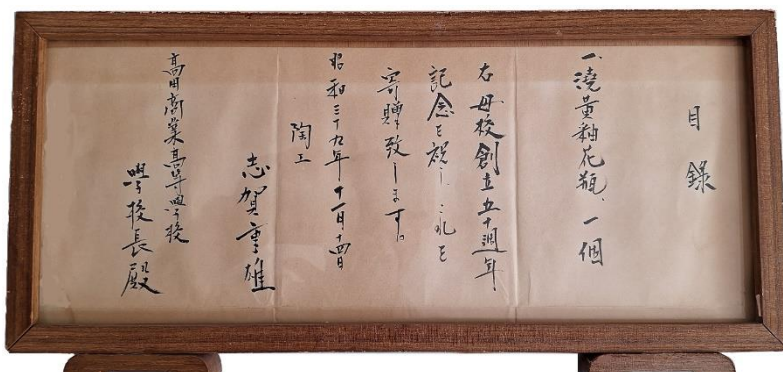 目錄
一、澆黄釉花瓶、一個
右母校創立五十週年
記念を祝しこれを
寄贈致します。
昭和三十九年十一月十四日
陶工
志賀重雄
高田商業高等学校
学校長殿